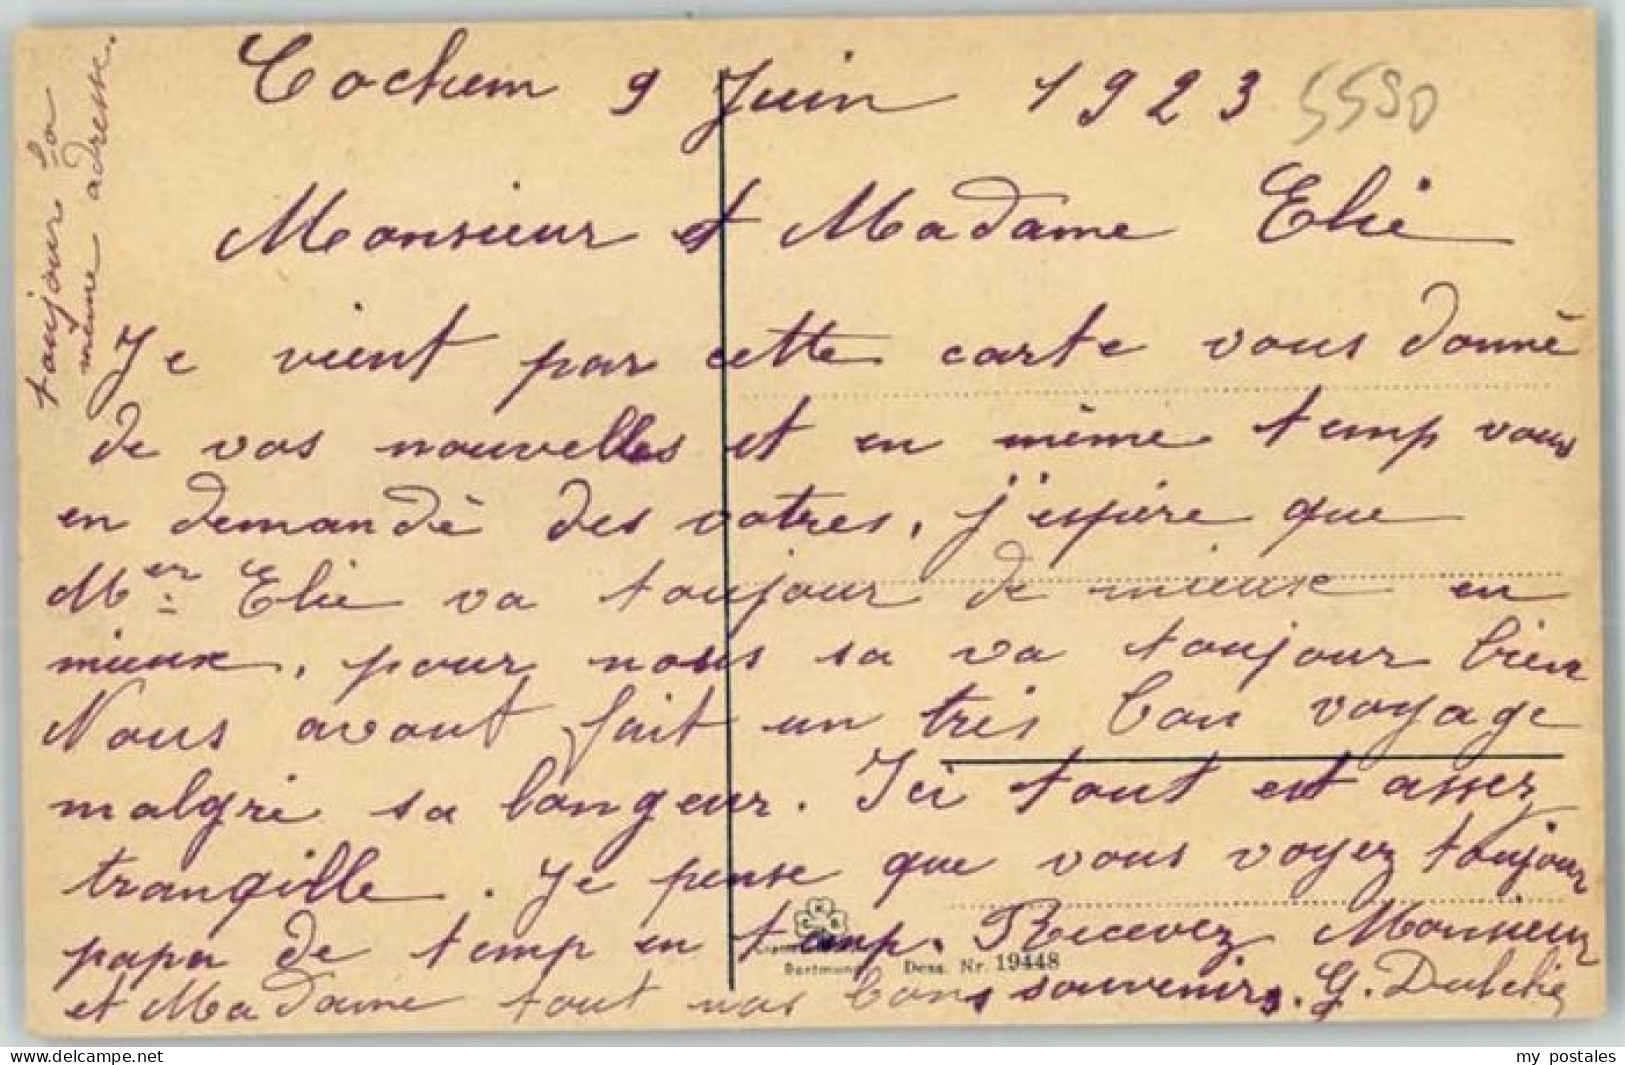 Cochem 9 Juin 1923 5590
Monsieur et Madame Elie
Je vient par cette carte vous donné
de nos nouvelles et en même temp vous
en demandé des votres, j'espère que
Mer Elie va toujour de mieux en
mieux, pour nous sa va toujour bien
Nous avont fait un tres bon voyage
malgré sa longeur. Ici tout est assez
tranqille. Je pense que vous voyez toujour
papa de temp en temp. Recevez Monsieur
et Madame tout nos bons souvenirs. G.
toujours la
même adresse.
Dortmund
Dess. Nr. 19448
my postales